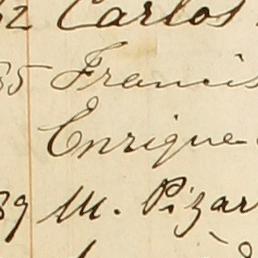 62 Carlos
85 Francis
Enrique
89 M. Pizar